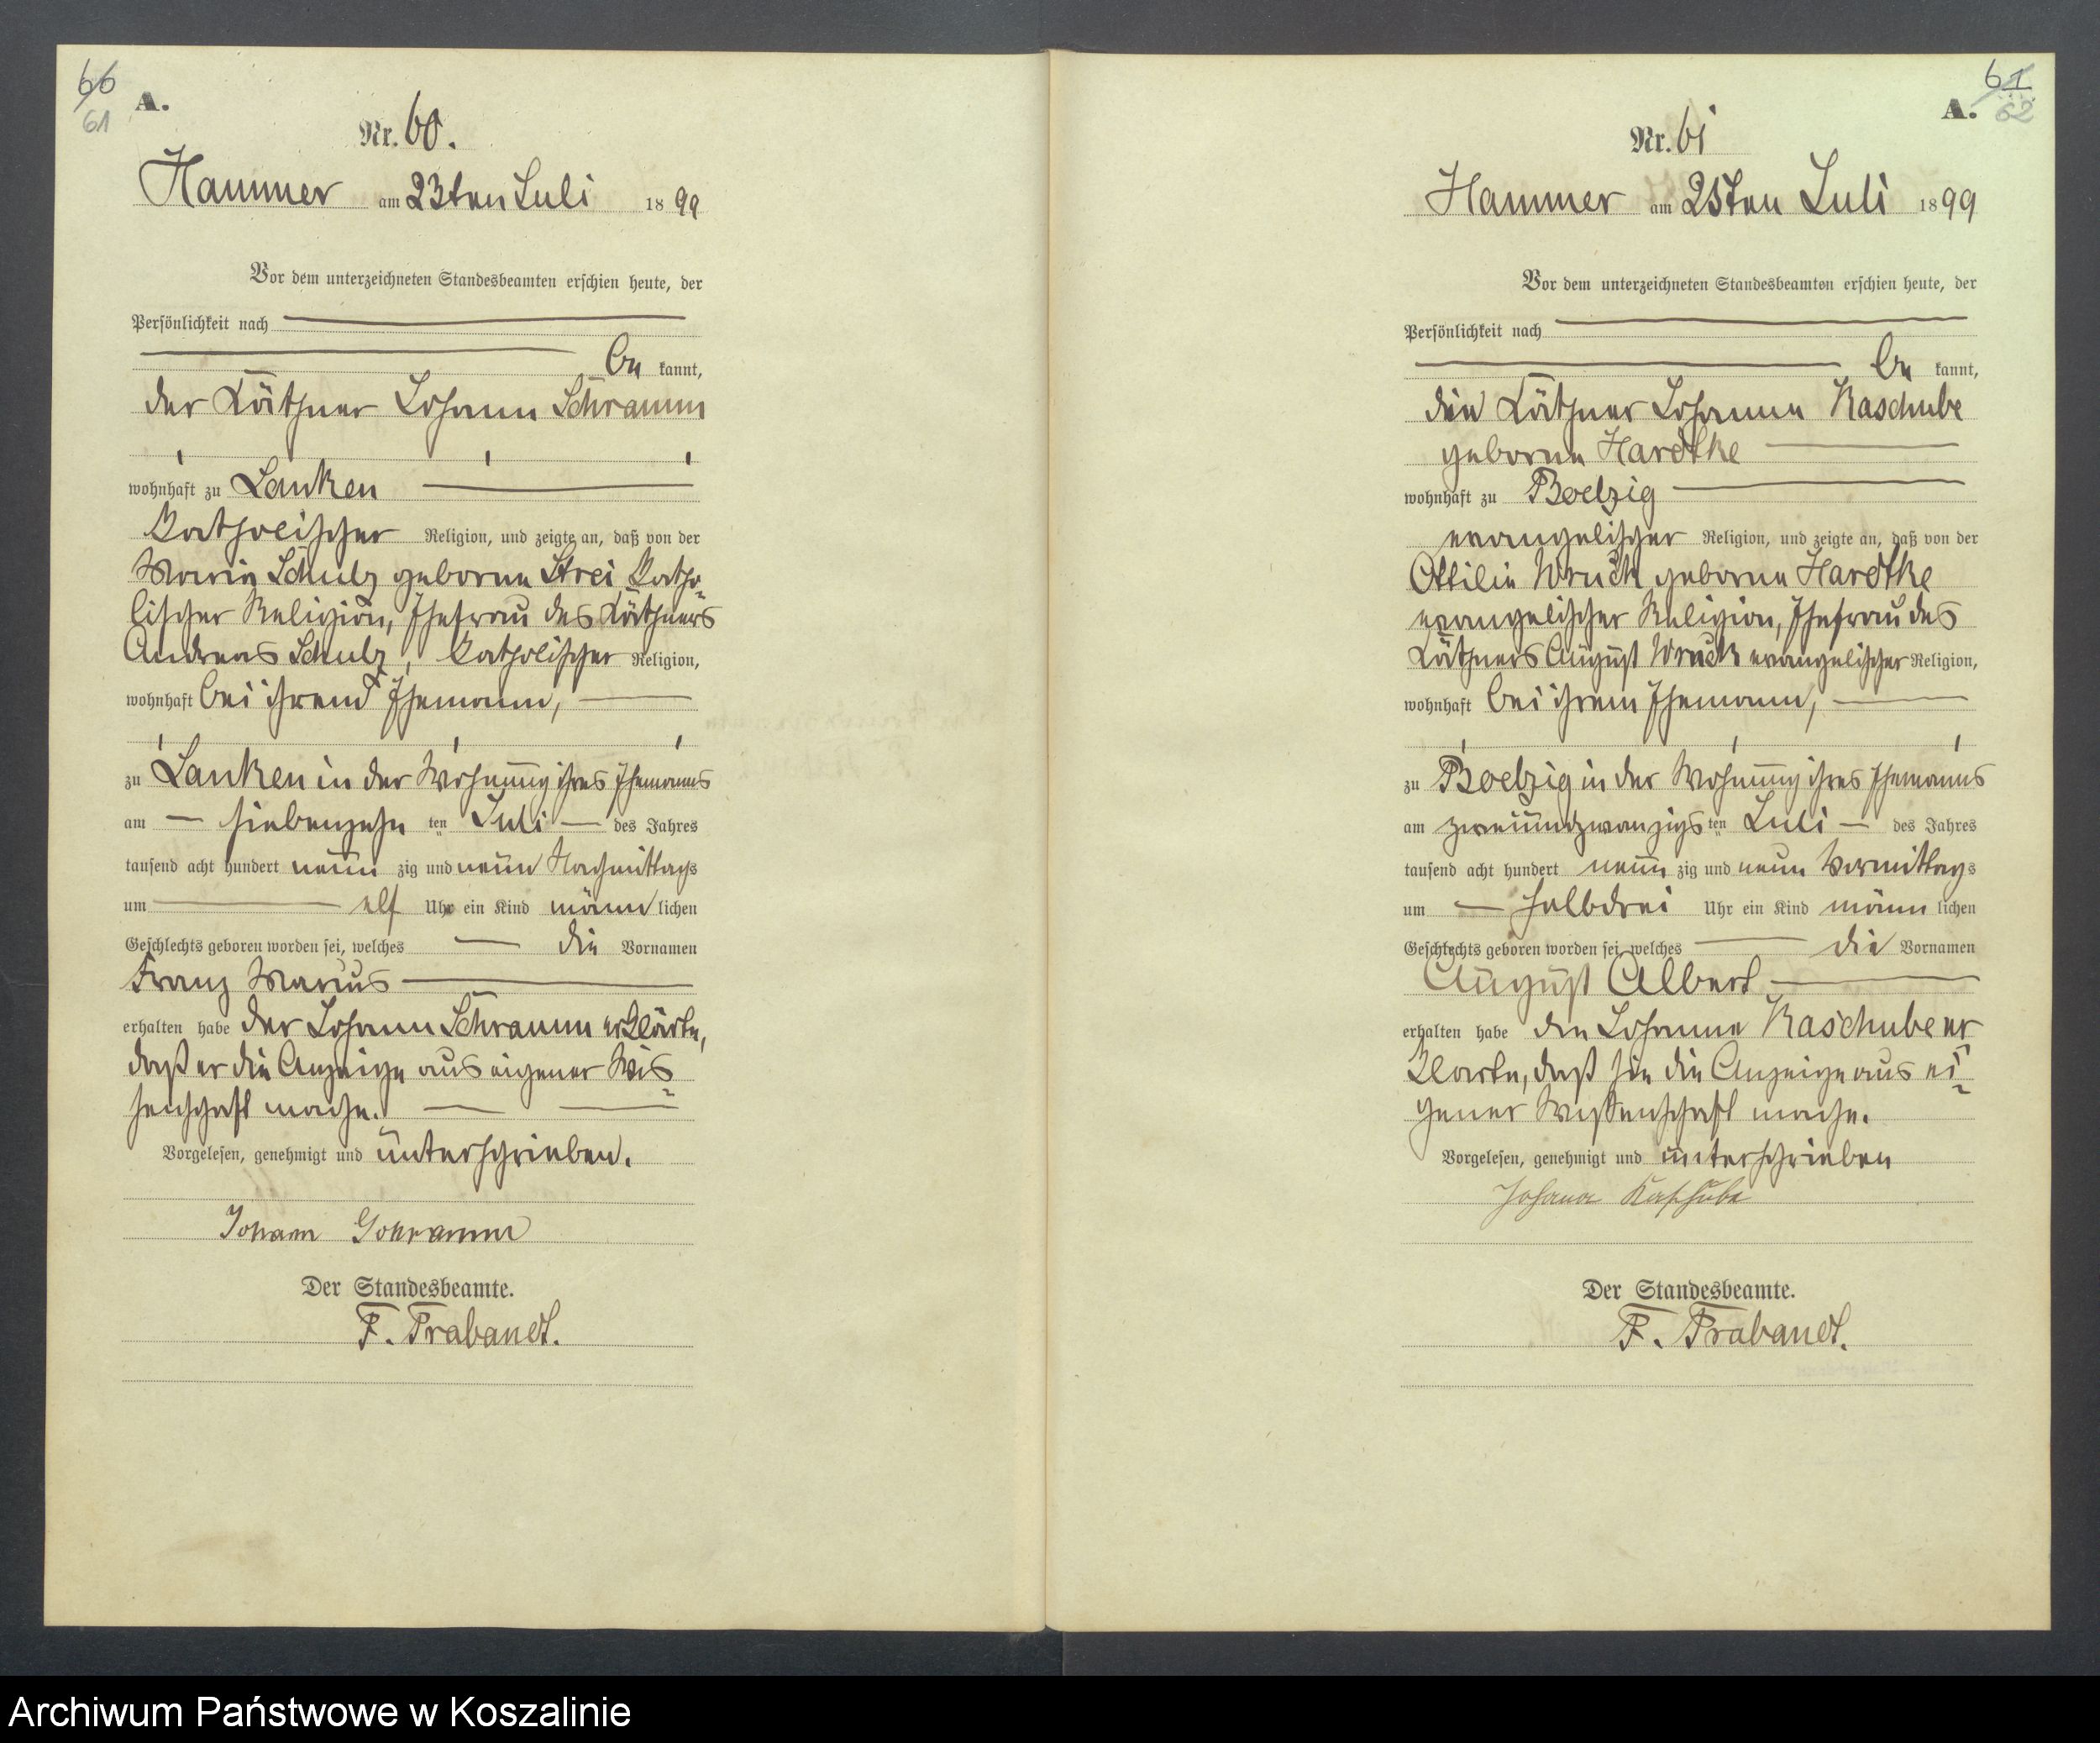 66
61
A.
Nr. 60.
Hammer am 23ten Juli 1899
Vor dem unterzeichneten Standesbeamten erschien heute, der
Persönlichkeit nach
be kannt,
der Käthner Johann Schramm
wohnhaft zu Lanken
katholischer Religion, und zeigte an, daß von der
Maria Schulz geborne Strei, katho-
lischer Religion, Ehefrau des Käthners
Andreas Schulz, katholischer Religion,
wohnhaft bei ihrem Ehemann,
zu Lanken in der Wohnung ihres Ehemanns
am siebenzehn ten Juli des Jahres
tausend acht hundert neun zig und neun Nachmittags
um elf Uhr ein Kind männ lichen
Geschlechts geboren worden sei, welches die Vornamen
Franz Marius
erhalten habe der Johann Schramm erklärte,
daß er die Anzeige aus eigener Wis-
senschaft mache.
Vorgelesen, genehmigt und unterschrieben.
Johann Schramm
Der Standesbeamte.
F. Trabandt.
61
62
A.
Nr. 61
Hammer am 25ten Juli 1899
Vor dem unterzeichneten Standesbeamten erschien heute, der
Persönlichkeit nach
be kannt,
die Käthner Johanne Kaschube
geborne Hardtke
wohnhaft zu Boelzig
evangelischer Religion, und zeigte an, daß von der
Ottilie Wruck geborne Hardtke
evangelischer Religion, Ehefrau des
Käthners August Wruck evangelischer Religion,
wohnhaft bei ihrem Ehemann,
zu Boelzig in der Wohnung ihres Ehemanns
am zweiundzwanzigs ten Juli des Jahres
tausend acht hundert neun zig und neun Vormittags
um halbdrei Uhr ein Kind männ lichen
Geschlechts geboren worden sei, welches die Vornamen
August Albert
erhalten habe die Johanne Kaschube er
klärte, daß sie die Anzeige aus ei-
gener Wissenschaft mache.
Vorgelesen, genehmigt und unterschrieben
Johana Kaschube
Der Standesbeamte.
F. Trabandt.
Archiwum Państwowe w Koszalinie